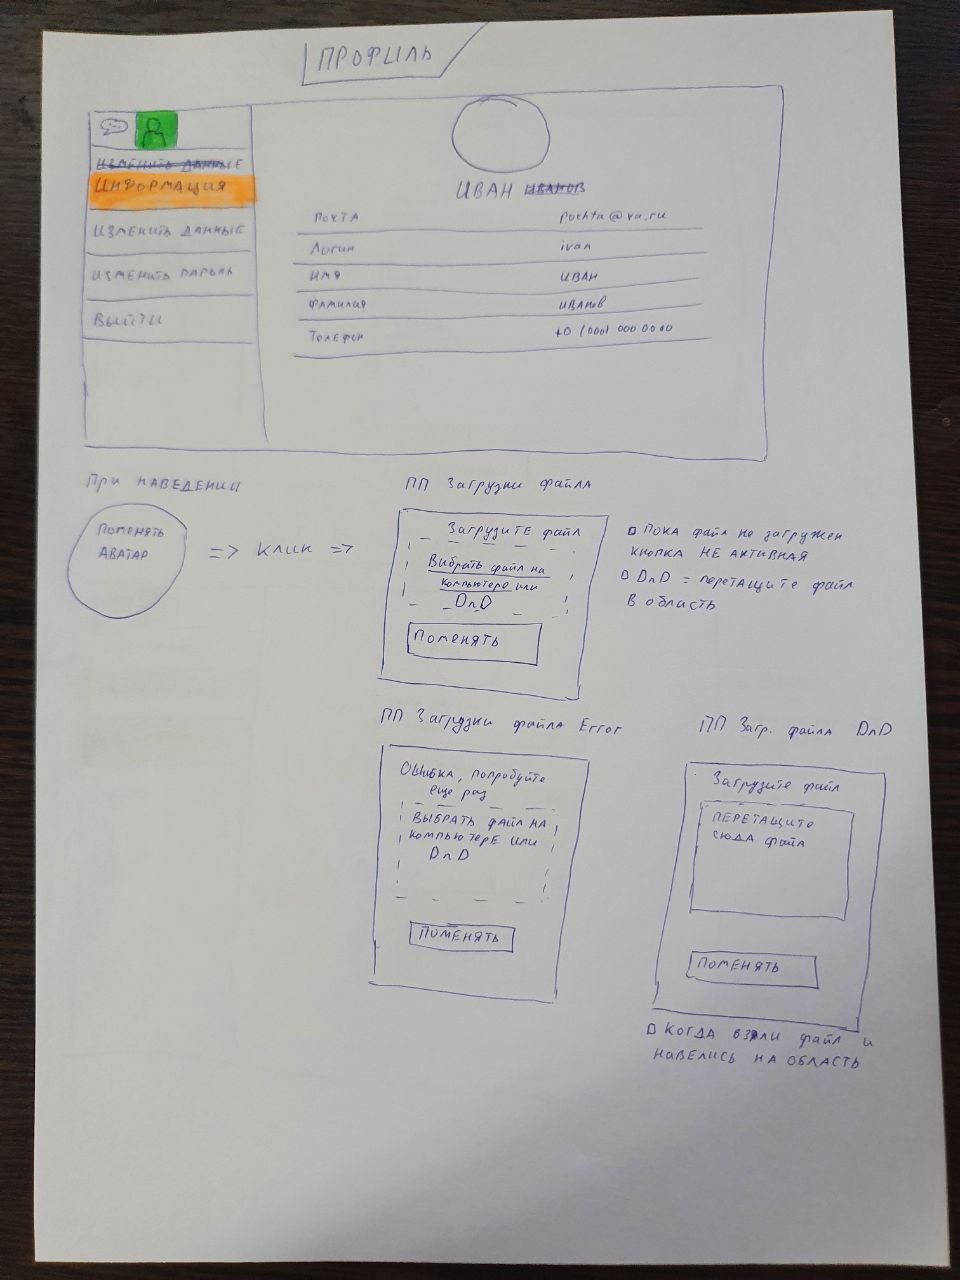 ПРОФИЛЬ
ИЗМЕНИТЬ ДАННЫЕ
ИНФОРМАЦИЯ
ИЗМЕНИТЬ ДАННЫЕ
ИЗМЕНИТЬ ПАРОЛЬ
ВЫЙТИ
ИВАН ИВАНОВ
ПОЧТА pochta@ya.ru
Логин ivan
ИМЯ ИВАН
ФАМИЛИЯ ИВАНОВ
ТЕЛЕФОН +0 (000) 000 00 00
При НАВЕДЕНИИ
ПОМЕНЯТЬ
АВАТАР
=> КЛИК =>
ПП Загрузки файла
Загрузите файл
Выбрать файл на
компьютере или
DnD
Поменять
Пока файл не загружен
кнопка НЕ АКТИВНАЯ
DnD = перетащите файл
в область
ПП Загрузки файла Error
ОШИБКА, попробуйте
еще раз
ВЫБРАТЬ ФАЙЛ НА
КОМПЬЮТЕРЕ ИЛИ
DnD
ПОМЕНЯТЬ
ПП Загр. файла DnD
Загрузите файл
ПЕРЕТАЩИТЕ
СЮДА файл
ПОМЕНЯТЬ
КОГДА ВЗЯЛИ файл и
НАВЕЛИСЬ НА ОБЛАСТЬ